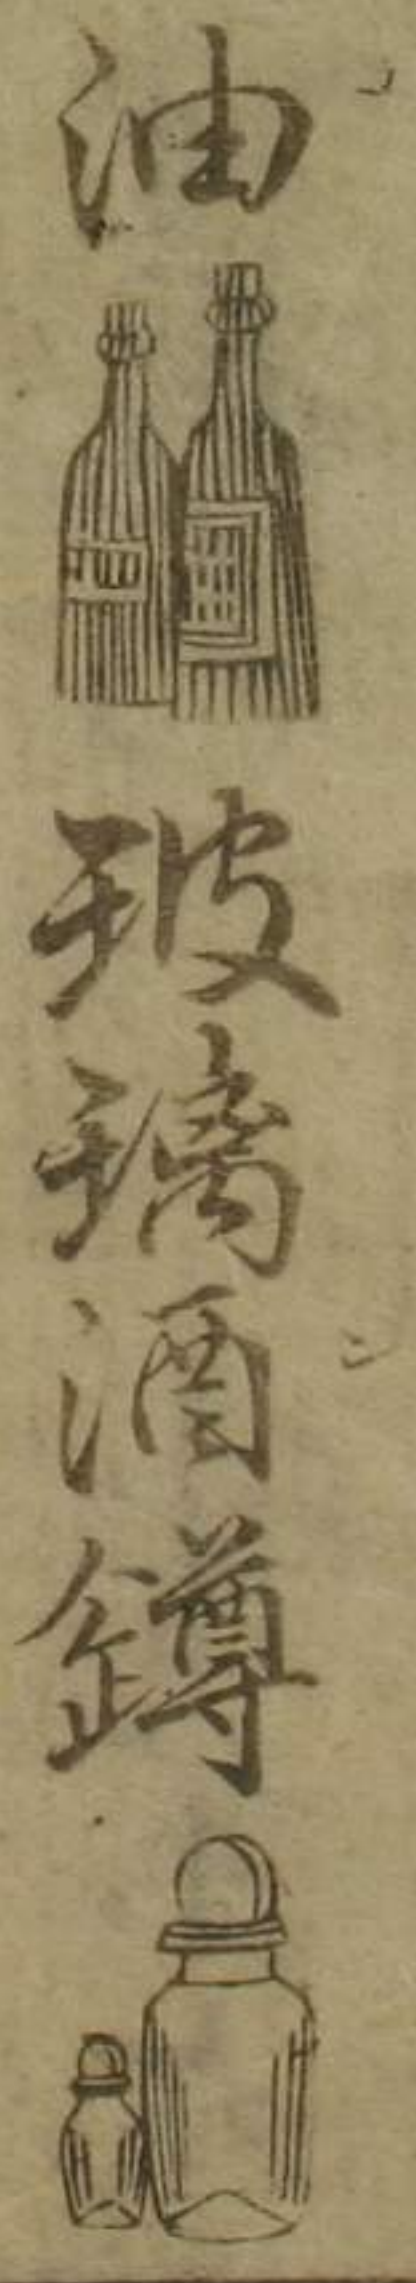 油
玻璃酒罇